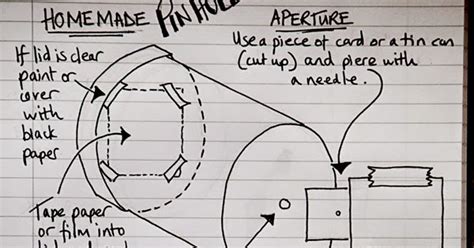 HOMEMADE PINHOLE
APERTURE
Use a piece of card or a tin can
(cut up) and pierce with
a needle.
If lid is clear
paint or
cover
with
black
paper
Tape paper
or film into